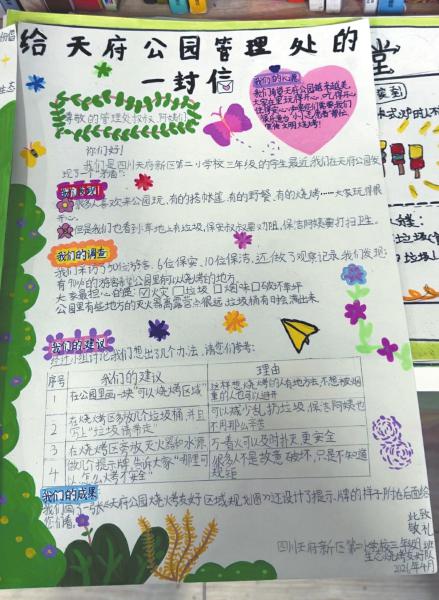 给天府公园管理处的
一封信
尊敬的管理处叔叔、阿姨们
你们好!
我们是四川天府新区第二小学校三年级的学生最近,我们在天府公园发
现了一个"矛盾":
我们的心愿
我们希望天府公园越来越美,
大家在里玩得开心、吃得开心
我们发现
很多人喜欢来公园玩,有的搭帐篷,有的野餐,有的烧烤……大家玩得很
开心。
但是我们也看到草地上有垃圾,保安叔叔要劝阻,保洁阿姨要打扫卫生。
我们的调查
我们采访了50位游客,6位保安,10位保洁,还做了观察记录,我们发现:
有的游客希望公园里有可以烧烤的地方
大家最担心的是:☑火灾 □垃圾 □烟味 □破坏草坪
公园里有些地方的灭火器离露营点很远,垃圾桶有时会满出来
我们的建议
经过小组讨论,我们想出了几个办法,请您们参考:
序号 我们的建议 理由
1 在公园里画一块"可以烧烤区域" 这样想烧烤的人有地方去,不想被烟熏的人也可以避开
2 在烧烤区多放几个垃圾桶,并且写上"垃圾请带走" 可以减少乱扔垃圾,保洁阿姨也不用那么辛苦
3 在烧烤区旁放灭火器和水源 万一着火可以及时扑灭,更安全
4 做几个提示牌,告诉大家"哪里可以、怎么烤不安全" 很多人不是故意破坏,只是不知道规矩
我们的成果
我们画了一张《天府公园烧烤友好区域规划图》还设计了提示牌的样子,附在后面给
您们看。
此致
敬礼
四川天府新区第二小学校三年级 班
生态烧烤友好队
2026年4月